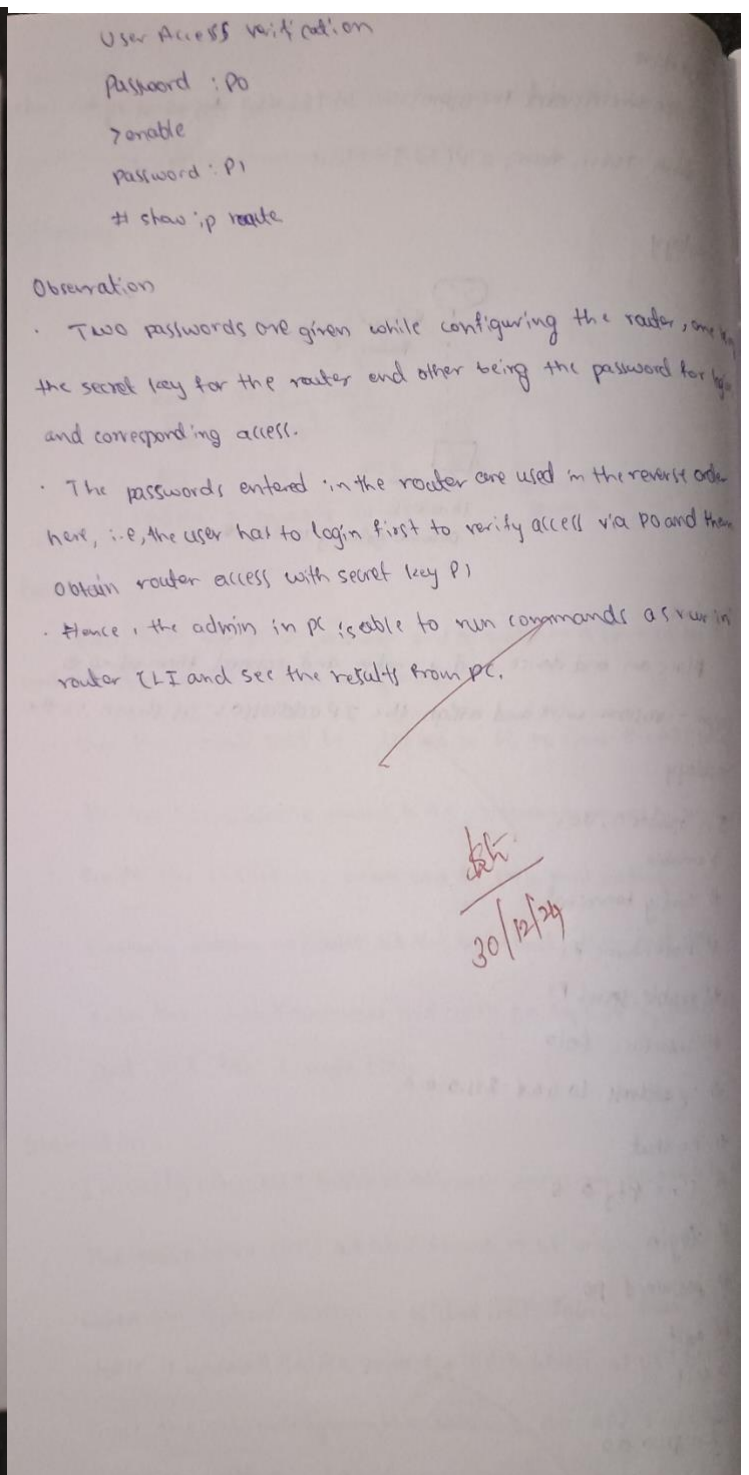 User Access verification
Password : P0
>enable
password : P1
# show ip route
Observation
· Two passwords are given while configuring the router, one
the secret key for the router and other being the password for login
and corresponding access.
· The passwords entered in the router are used in the reverse order
here, i.e, the user has to login first to verify access via P0 and then
obtain router access with secret key P1
· Hence, the admin in PC is able to run commands as run in
router CLI and see the results from PC.
30/12/24